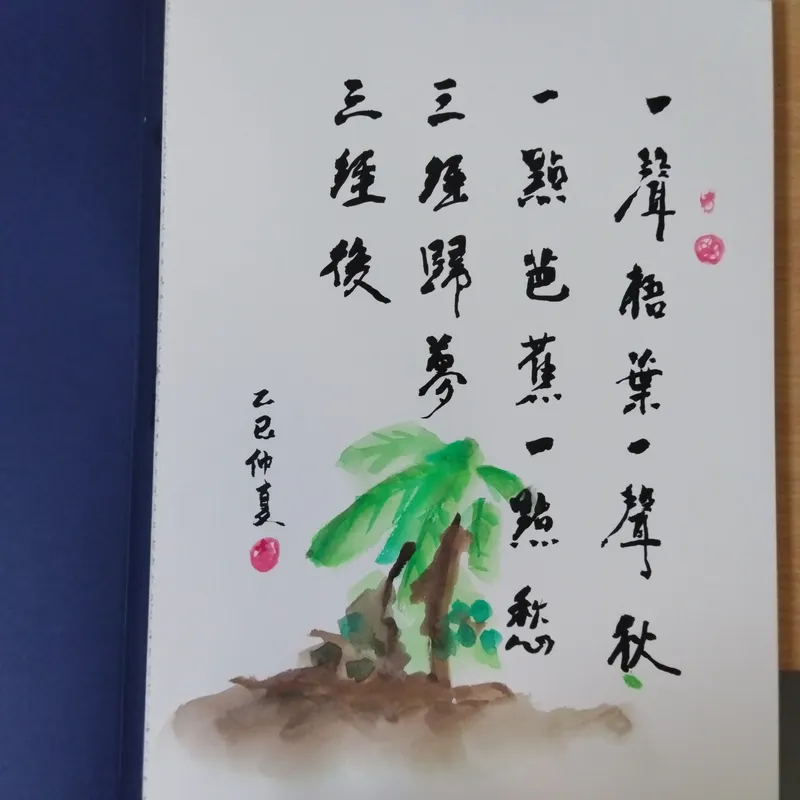 一聲梧葉一聲秋
一點芭蕉一點愁
三經歸夢
三經後
乙巳仲夏